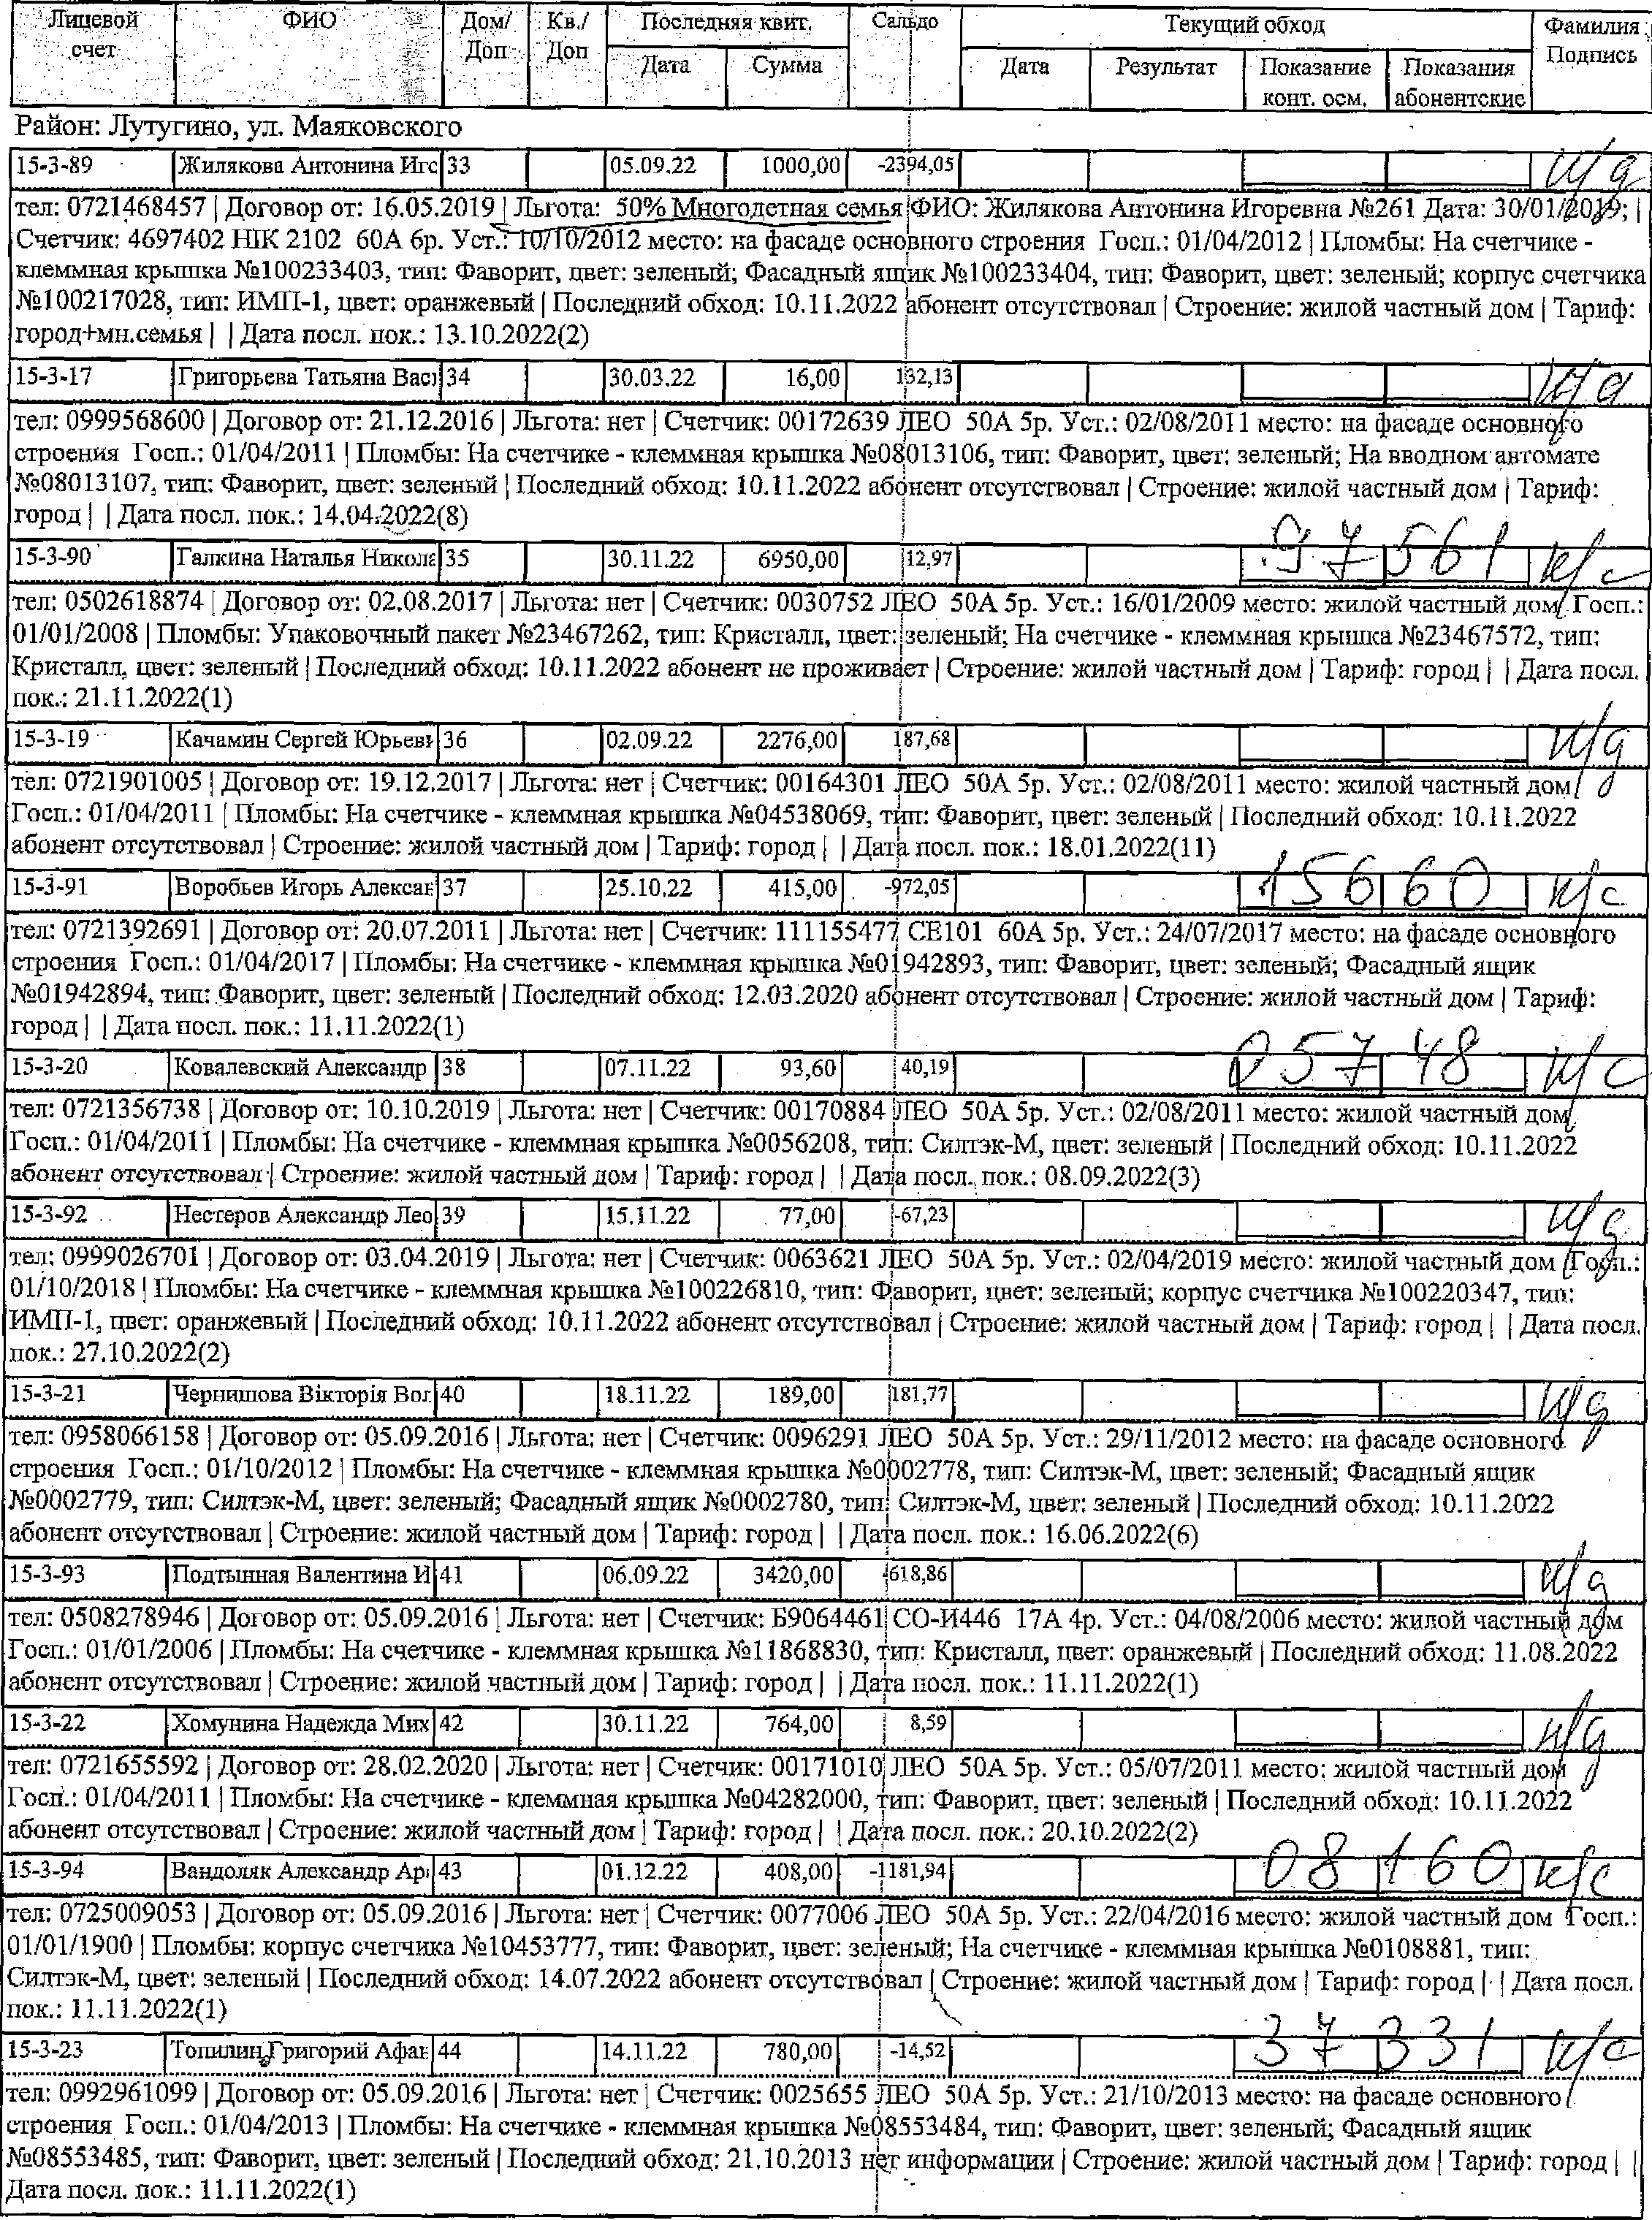 Лицевой счет | ФИО | Дом/ Доп | Кв./ Доп | Последняя квит. | Сальдо | Текущий обход | Фамилия Подпись
Дата | Сумма | Дата | Результат | Показание конт. осм. | Показания абонентские
Район: Лутугино, ул. Маяковского
15-3-89 | Жилякова Антонина Игс | 33 | 05.09.22 | 1000,00 | -2394,05 | н/д
тел: 0721468457 | Договор от: 16.05.2019 | Льгота: 50% Многодетная семья ФИО: Жилякова Антонина Игоревна №261 Дата: 30/01/2019; |
Счетчик: 4697402 НІК 2102 60А 6р. Уст.: 10/10/2012 место: на фасаде основного строения Госп.: 01/04/2012 | Пломбы: На счетчике -
клеммная крышка №100233403, тип: Фаворит, цвет: зеленый; Фасадный ящик №100233404, тип: Фаворит, цвет: зеленый; корпус счетчика
№100217028, тип: ИМП-1, цвет: оранжевый | Последний обход: 10.11.2022 абонент отсутствовал | Строение: жилой частный дом | Тариф:
город+мн.семья | | Дата посл. пок.: 13.10.2022(2)
15-3-17 | Григорьева Татьяна Вас | 34 | 30.03.22 | 16,00 | 132,13 | н/д
тел: 0999568600 | Договор от: 21.12.2016 | Льгота: нет | Счетчик: 00172639 ЛЕО 50А 5р. Уст.: 02/08/2011 место: на фасаде основного
строения Госп.: 01/04/2011 | Пломбы: На счетчике - клеммная крышка №08013106, тип: Фаворит, цвет: зеленый; На вводном автомате
№08013107, тип: Фаворит, цвет: зеленый | Последний обход: 10.11.2022 абонент отсутствовал | Строение: жилой частный дом | Тариф:
город | | Дата посл. пок.: 14.04.2022(8)
15-3-90 | Галкина Наталья Никола | 35 | 30.11.22 | 6950,00 | 12,97 | 97561 | н/с
тел: 0502618874 | Договор от: 02.08.2017 | Льгота: нет | Счетчик: 0030752 ЛЕО 50А 5р. Уст.: 16/01/2009 место: жилой частный дом Госп.:
01/01/2008 | Пломбы: Упаковочный пакет №23467262, тип: Кристалл, цвет: зеленый; На счетчике - клеммная крышка №23467572, тип:
Кристалл, цвет: зеленый | Последний обход: 10.11.2022 абонент не проживает | Строение: жилой частный дом | Тариф: город | | Дата посл.
пок.: 21.11.2022(1)
15-3-19 | Качамин Сергей Юрьеви | 36 | 02.09.22 | 2276,00 | 187,68 | н/д
тел: 0721901005 | Договор от: 19.12.2017 | Льгота: нет | Счетчик: 00164301 ЛЕО 50А 5р. Уст.: 02/08/2011 место: жилой частный дом
Госп.: 01/04/2011 | Пломбы: На счетчике - клеммная крышка №04538069, тип: Фаворит, цвет: зеленый | Последний обход: 10.11.2022
абонент отсутствовал | Строение: жилой частный дом | Тариф: город | | Дата посл. пок.: 18.01.2022(11)
15-3-91 | Воробьев Игорь Алексан | 37 | 25.10.22 | 415,00 | -972,05 | 15660 | н/с
тел: 0721392691 | Договор от: 20.07.2011 | Льгота: нет | Счетчик: 111155477 СЕ101 60А 5р. Уст.: 24/07/2017 место: на фасаде основного
строения Госп.: 01/04/2017 | Пломбы: На счетчике - клеммная крышка №01942893, тип: Фаворит, цвет: зеленый; Фасадный ящик
№01942894, тип: Фаворит, цвет: зеленый | Последний обход: 12.03.2020 абонент отсутствовал | Строение: жилой частный дом | Тариф:
город | | Дата посл. пок.: 11.11.2022(1)
15-3-20 | Ковалевский Александр | 38 | 07.11.22 | 93,60 | 40,19 | 05748 | н/с
тел: 0721356738 | Договор от: 10.10.2019 | Льгота: нет | Счетчик: 00170884 ЛЕО 50А 5р. Уст.: 02/08/2011 место: жилой частный дом
Госп.: 01/04/2011 | Пломбы: На счетчике - клеммная крышка №0056208, тип: Силтэк-М, цвет: зеленый | Последний обход: 10.11.2022
абонент отсутствовал | Строение: жилой частный дом | Тариф: город | | Дата посл. пок.: 08.09.2022(3)
15-3-92 | Нестеров Александр Лео | 39 | 15.11.22 | 77,00 | -67,23 | н/д
тел: 0999026701 | Договор от: 03.04.2019 | Льгота: нет | Счетчик: 0063621 ЛЕО 50А 5р. Уст.: 02/04/2019 место: жилой частный дом Госп.:
01/10/2018 | Пломбы: На счетчике - клеммная крышка №100226810, тип: Фаворит, цвет: зеленый; корпус счетчика №100220347, тип:
ИМП-1, цвет: оранжевый | Последний обход: 10.11.2022 абонент отсутствовал | Строение: жилой частный дом | Тариф: город | | Дата посл.
пок.: 27.10.2022(2)
15-3-21 | Чернишова Вікторія Вол | 40 | 18.11.22 | 189,00 | 181,77 | н/д
тел: 0958066158 | Договор от: 05.09.2016 | Льгота: нет | Счетчик: 0096291 ЛЕО 50А 5р. Уст.: 29/11/2012 место: на фасаде основного
строения Госп.: 01/10/2012 | Пломбы: На счетчике - клеммная крышка №0002778, тип: Силтэк-М, цвет: зеленый; Фасадный ящик
№0002779, тип: Силтэк-М, цвет: зеленый; Фасадный ящик №0002780, тип: Силтэк-М, цвет: зеленый | Последний обход: 10.11.2022
абонент отсутствовал | Строение: жилой частный дом | Тариф: город | | Дата посл. пок.: 16.06.2022(6)
15-3-93 | Подтынная Валентина И | 41 | 06.09.22 | 3420,00 | -618,86 | н/д
тел: 0508278946 | Договор от: 05.09.2016 | Льгота: нет | Счетчик: Б9064461 СО-И446 17А 4р. Уст.: 04/08/2006 место: жилой частный дом
Госп.: 01/01/2006 | Пломбы: На счетчике - клеммная крышка №11868830, тип: Кристалл, цвет: оранжевый | Последний обход: 11.08.2022
абонент отсутствовал | Строение: жилой частный дом | Тариф: город | | Дата посл. пок.: 11.11.2022(1)
15-3-22 | Хомунина Надежда Мих | 42 | 30.11.22 | 764,00 | 8,59 | н/д
тел: 0721655592 | Договор от: 28.02.2020 | Льгота: нет | Счетчик: 00171010 ЛЕО 50А 5р. Уст.: 05/07/2011 место: жилой частный дом
Госп.: 01/04/2011 | Пломбы: На счетчике - клеммная крышка №04282000, тип: Фаворит, цвет: зеленый | Последний обход: 10.11.2022
абонент отсутствовал | Строение: жилой частный дом | Тариф: город | | Дата посл. пок.: 20.10.2022(2)
15-3-94 | Вандоляк Александр Ар | 43 | 01.12.22 | 408,00 | -1181,94 | 08160 | н/с
тел: 0725009053 | Договор от: 05.09.2016 | Льгота: нет | Счетчик: 0077006 ЛЕО 50А 5р. Уст.: 22/04/2016 место: жилой частный дом Госп.:
01/01/1900 | Пломбы: корпус счетчика №10453777, тип: Фаворит, цвет: зеленый; На счетчике - клеммная крышка №0108881, тип:
Силтэк-М, цвет: зеленый | Последний обход: 14.07.2022 абонент отсутствовал | Строение: жилой частный дом | Тариф: город | | Дата посл.
пок.: 11.11.2022(1)
15-3-23 | Топилин Григорий Афан | 44 | 14.11.22 | 780,00 | -14,52 | 37331 | н/с
тел: 0992961099 | Договор от: 05.09.2016 | Льгота: нет | Счетчик: 0025655 ЛЕО 50А 5р. Уст.: 21/10/2013 место: на фасаде основного
строения Госп.: 01/04/2013 | Пломбы: На счетчике - клеммная крышка №08553484, тип: Фаворит, цвет: зеленый; Фасадный ящик
№08553485, тип: Фаворит, цвет: зеленый | Последний обход: 21.10.2013 нет информации | Строение: жилой частный дом | Тариф: город | |
Дата посл. пок.: 11.11.2022(1)